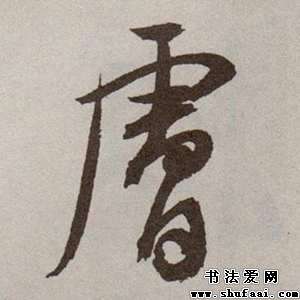 膚
书法爱网
www.shufaai.com